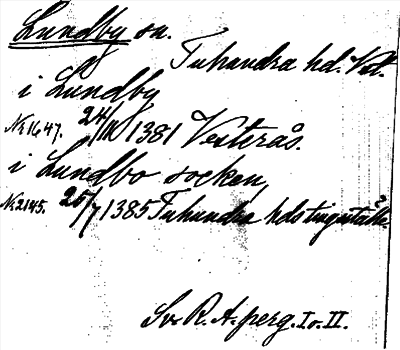 Lundby sn.
Tuhundra hd. Vstl.
i Lundby
No 1647. 24/11 1381 Vesterås.
i Lundbo socken
No 2145. 25/7 1385 Tuhundra hds tingställe.
Sv. R. A. perg. I o. II.